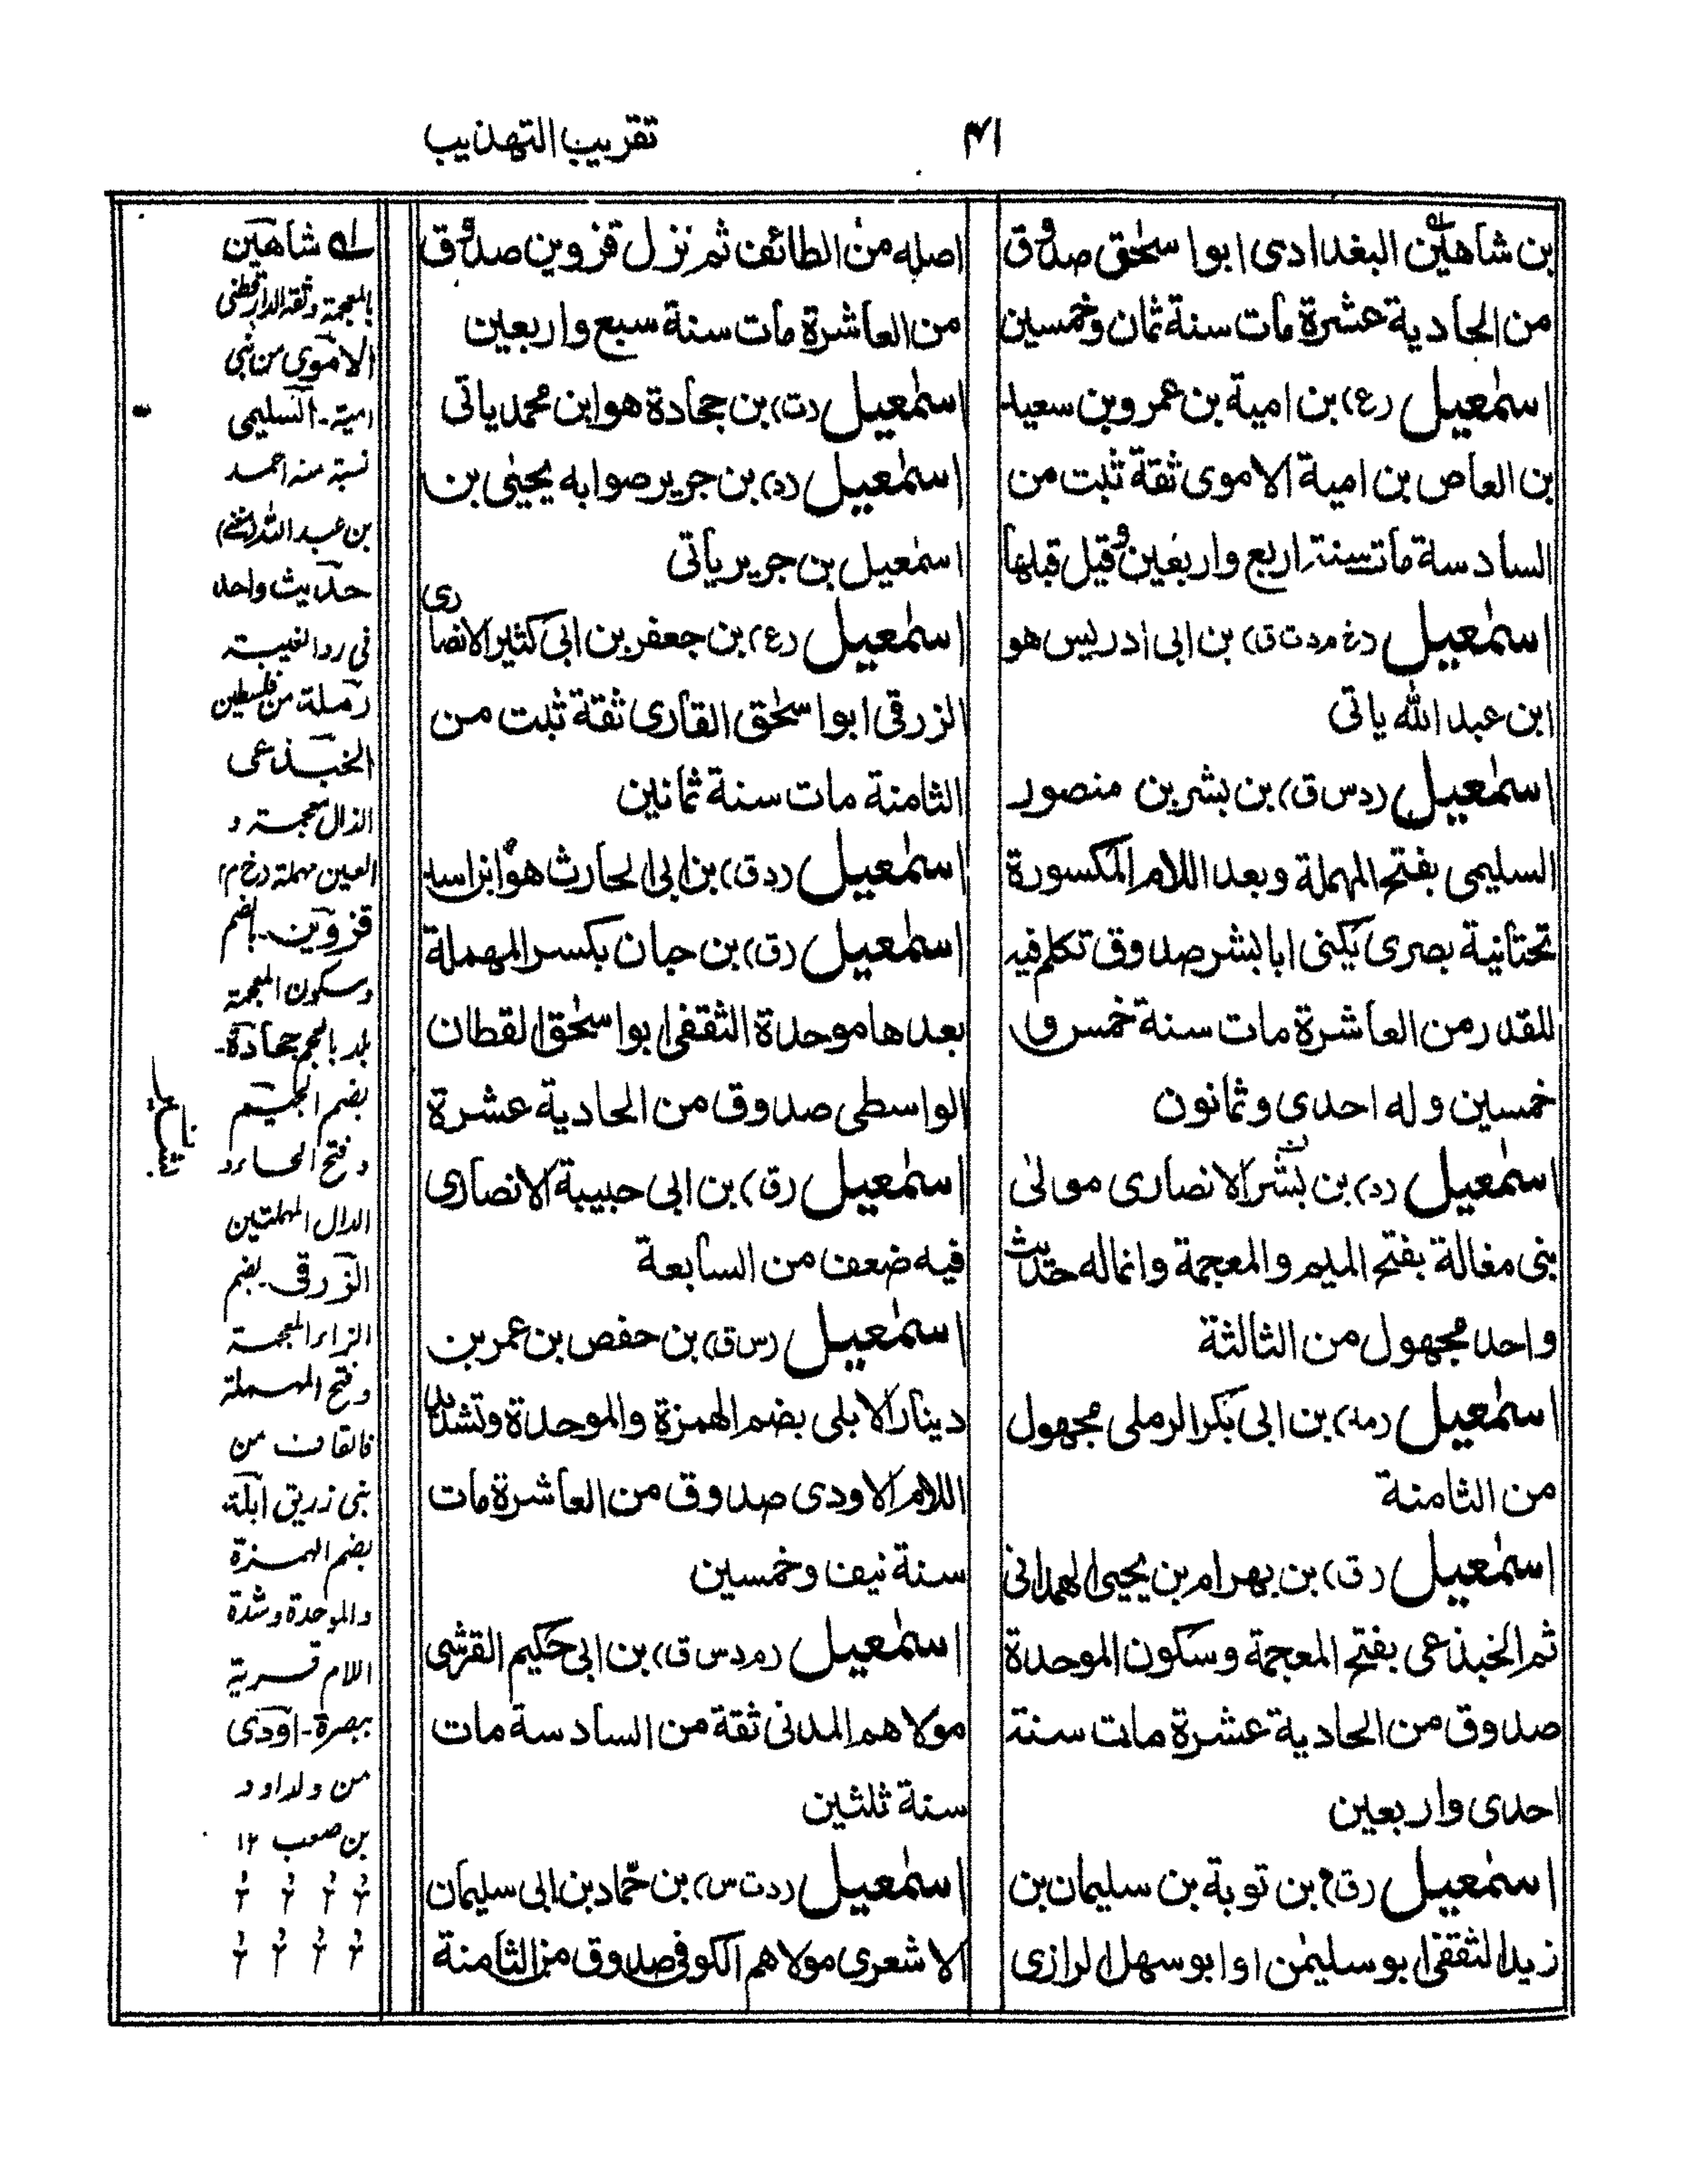 ۴۱
تقريب التهذيب
بن شاهين البغدادى ابوا سحٰق صدوق
من الحادية عشرة مات سنة ثمان وخمسين
اسمٰعيل (ع) بن امية بن عمرو بن سعيد
بن العاص بن امية الاموى ثقة ثبت من
السادسة مات سنة اربع واربعين وقيل قبلها
اسمٰعيل (خ م د ت ق) بن ابى ادريس هو
ابن عبد الله ياتى
اسمٰعيل (د س ق) بن بشر بن منصور
السليمى بفتح المهملة وبعد اللام المكسورة
تحتانية بصرى يكنى ابا بشر صدوق تكلم فيه
للقدر من العاشرة مات سنة خمس و
خمسين وله احدى وثمانون
اسمٰعيل (د) بن بشر الانصارى مولى
بنى مغالة بفتح الميم والمعجمة وانما له حديث
واحد مجهول من الثالثة
اسمٰعيل (مد) بن ابى بكر الرملى مجهول
من الثامنة
اسمٰعيل (ق) بن بهرام بن يحيى الهمدانى
ثم الخبذعى بفتح المعجمة وسكون الموحدة
صدوق من الحادية عشرة مات سنة
احدى واربعين
اسمٰعيل (ق) بن توبة بن سليمان بن
زيد الثقفى ابو سليمٰن او ابو سهل الرازى
اصله من الطائف ثم نزل قزوين صدوق
من العاشرة مات سنة سبع واربعين
اسمٰعيل (ت) بن جحادة هو ابن محمد ياتى
اسمٰعيل (د) بن جرير صوابه يحيٰى بن
اسمٰعيل بن جرير ياتى
اسمٰعيل (ع) بن جعفر بن ابى كثير الانصارى
الزرقى ابوا سحٰق القارى ثقة ثبت من
الثامنة مات سنة ثمانين
اسمٰعيل (د ق) بن ابى الحارث هو ابن اسد
اسمٰعيل (ق) بن حبان بكسر المهملة
بعدها موحدة الثقفى ابوا سحٰق القطان
الواسطى صدوق من الحادية عشرة
اسمٰعيل (ق) بن ابى حبيبة الانصارى
فيه ضعف من السابعة
اسمٰعيل (س ق) بن حفص بن عمر بن
دينار الابلى بضم الهمزة والموحدة وتشديد
اللام الاودى صدوق من العاشرة مات
سنة نيف وخمسين
اسمٰعيل (م د س ق) بن ابى حكيم القرشى
مولاهم المدنى ثقة من السادسة مات
سنة ثلثين
اسمٰعيل (د ت س) بن حمّاد بن ابى سليمان
الاشعرى مولاهم الكوفى صدوق من الثامنة
له شاهين
بالمعجمة وثقه الدارقطنى
الاموى من بنى
امية - السليمى
نسبة منه احمد
بن عبد الله
حديث واحد
فى رد الغيبة
رملة من فلسطين
الخبذعى
الذال معجمة و
العين مهملة
قزوين - بضم
وسكون المعجمة
بلد بالعجم جحادة -
بضم الجيم
وفتح الحاء و
الدال المهملتين
الزرقى - بضم
الزاء المعجمة
وفتح المهملة
فالقاف من
بنى زريق ابلة
بضم الهمزة
والموحدة وشدة
اللام قرية
ببصرة - اودى
من ولد اود
بن صعب ۱۲